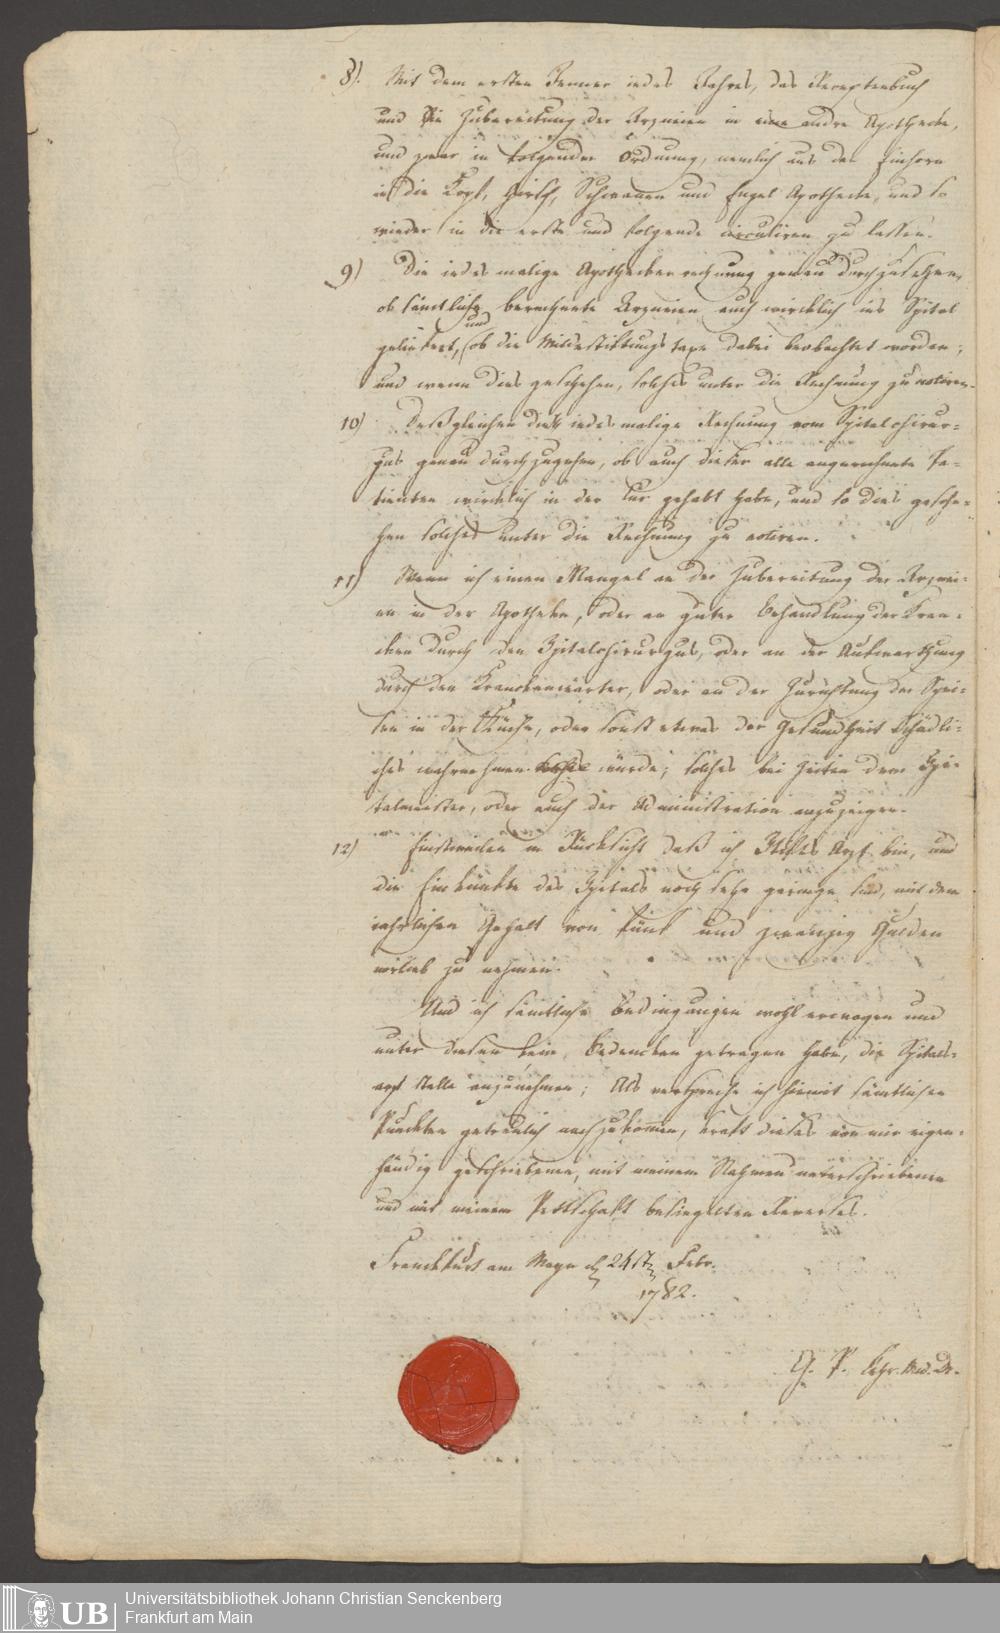 8). Mit dem ersten Jenner iedes Jahres, das Receptenbuch
und die Zubereitung der Arzneien in eine andre Apothecke,
und zwar in folgender Ordnung, nemlich aus der Einhorn
in die Kopf, Hirsch, Schwanen und Engel Apothecke, und so
wieder in die erste und folgende circuliren zu lassen.
9) Die iedesmalige Apotheckerrechnung genau durchzusehen,
ob sämtliche berechnete Arzneien auch wircklich ins Spital
geliefert, und ob die Mildestiftungs taxe dabei beobachtet worden;
und wenn dies geschehen, solches unter die Rechnung zu notiren.
10) Deßgleichen die iedesmalige Rechnung vom Spitalchirur=
gus genau durchzugehen, ob auch dieser alle angerechnete Pa=
tienten wircklich in der Cur gehabt habe, und so dies gesche=
hen solches unter die Rechnung zu notiren.
11) Wenn ich einen Mangel an der Zubereitung der Arznei=
en in der Apotheke, oder an guter Behandlung der Kran=
cken durch den Spitalchirurgus, oder an der Aufwarthung
durch den Kranckenwärter, oder an der Zurichtung der Spei=
sen in der Küche, oder sonst etwas der Gesundheit schädli=
ches wahrnehmen würde; solches bei Zeiten dem Spi=
talmeister, oder auch der Administration anzuzeigen.
12) Einstweilen in Rücksicht daß ich Stifts Arzt bin, und
die Einkünfte des Spitals noch sehr geringe sind, mit dem
iährlichen Gehalt von fünf und zwanzig Gulden
vorlieb zu nehmen.
Und ich sämtliche Bedingungen wohl erwogen und
unter diesen kein Bedencken getragen habe, die Spitals=
arzt stelle anzunehmen; Als verspreche ich hiermit sämtlichen
Punckten getreulich nachzukommen, kraft dieses von mir eigen=
händig geschriebenen, mit meinem Nahmen unterschriebenen
und mit meinem Pettschaft besiegelten Reverses.
Franckfurt am Mayn d 24st Febr.
1782.
G. P. Lehr. Med. Dr.
Universitätsbibliothek Johann Christian Senckenberg
UB Frankfurt am Main